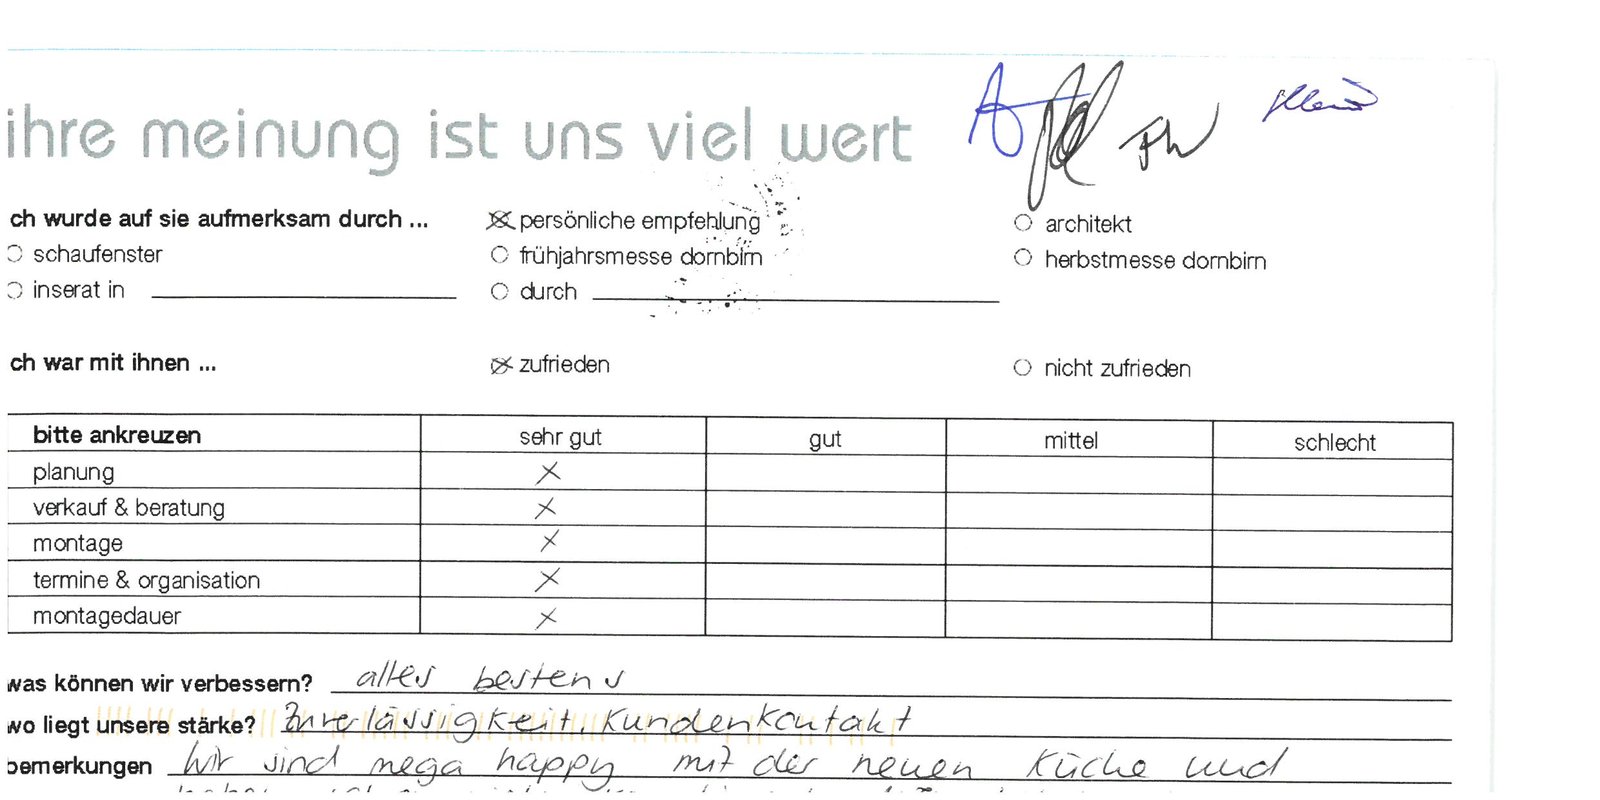 ihre meinung ist uns viel wert
ch wurde auf sie aufmerksam durch ... persönliche empfehlung architekt
schaufenster frühjahrsmesse dornbirn herbstmesse dornbirn
inserat in durch
ch war mit ihnen ... zufrieden nicht zufrieden
bitte ankreuzen sehr gut gut mittel schlecht
planung X
verkauf & beratung X
montage X
termine & organisation X
montagedauer X
was können wir verbessern? alles bestens
wo liegt unsere stärke? Zuverlässigkeit, Kundenkontakt
bemerkungen Wir sind mega happy mit der neuen Küche und